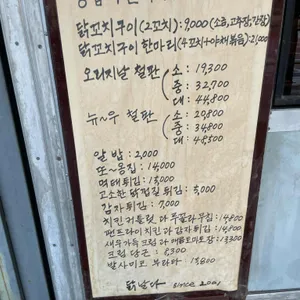 닭꼬치구이(2꼬치): 9000 (소금,고추장,간장)
닭꼬치구이 한마리(4꼬치+야채볶음):21,000
오리지날 철판
소: 19,300
중: 32,700
대: 44,800
뉴~우 철판
소: 20,800
중: 34,800
대: 48,500
알 밥: 2,000
또~옹집: 14,000
먹태튀김: 15,000
고소한 닭껍질튀김: 5,000
감자튀김: 7,000
치킨 커틀릿 과 14800
치킨과 감자튀김: 14,800
새우가득크림과 토마토장: 13300
크림 당근: 8300
발사미코 부라타: 15,800
닭날다 since 2001